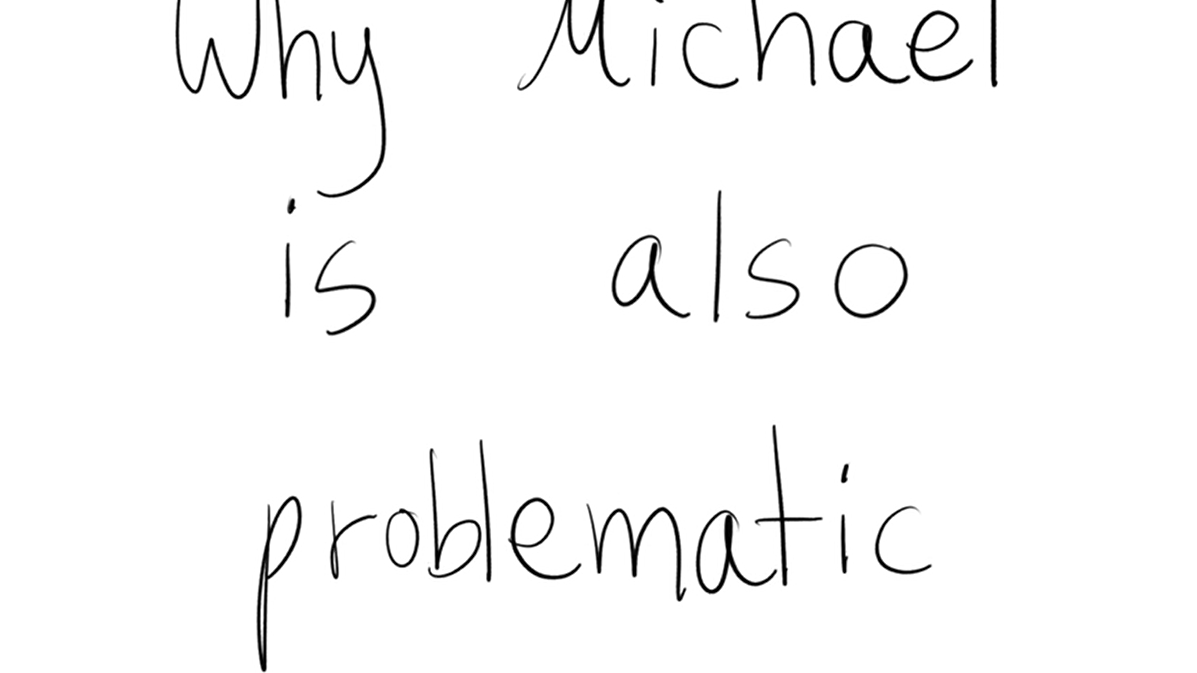 Why Michael
is also
problematic